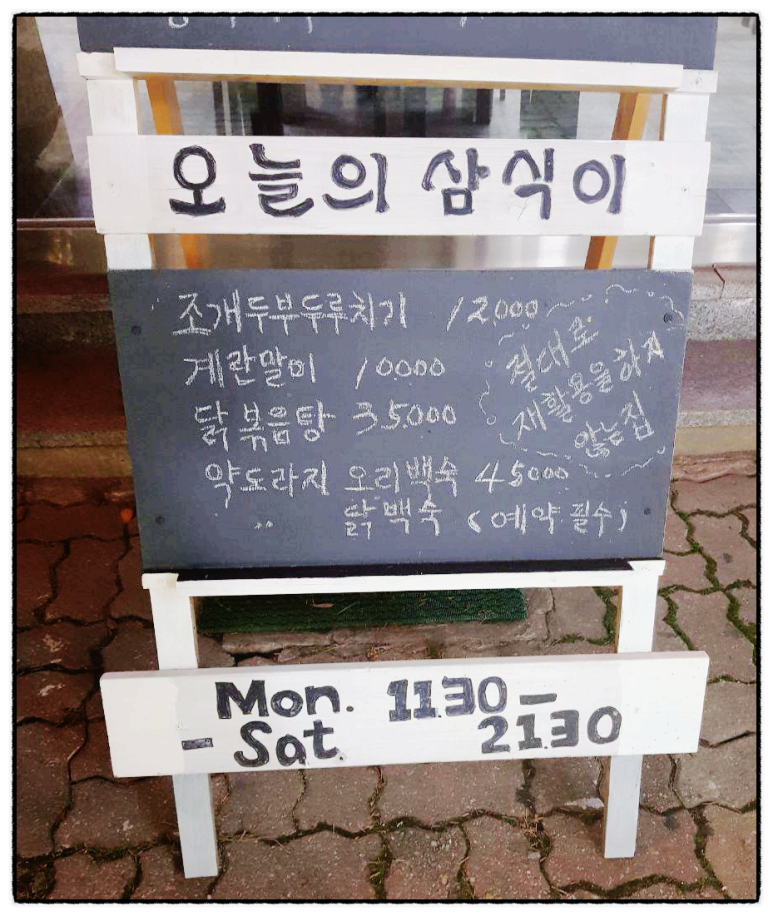 오늘의 삼식이
조개두부두루치기 12,000
계란말이 10000
닭볶음탕 35000
약도라지 오리백숙 45000
〃 닭백숙 (예약필수)
절대로
재활용을하지
않는집
Mon. 11:30 -
- Sat. 21:30